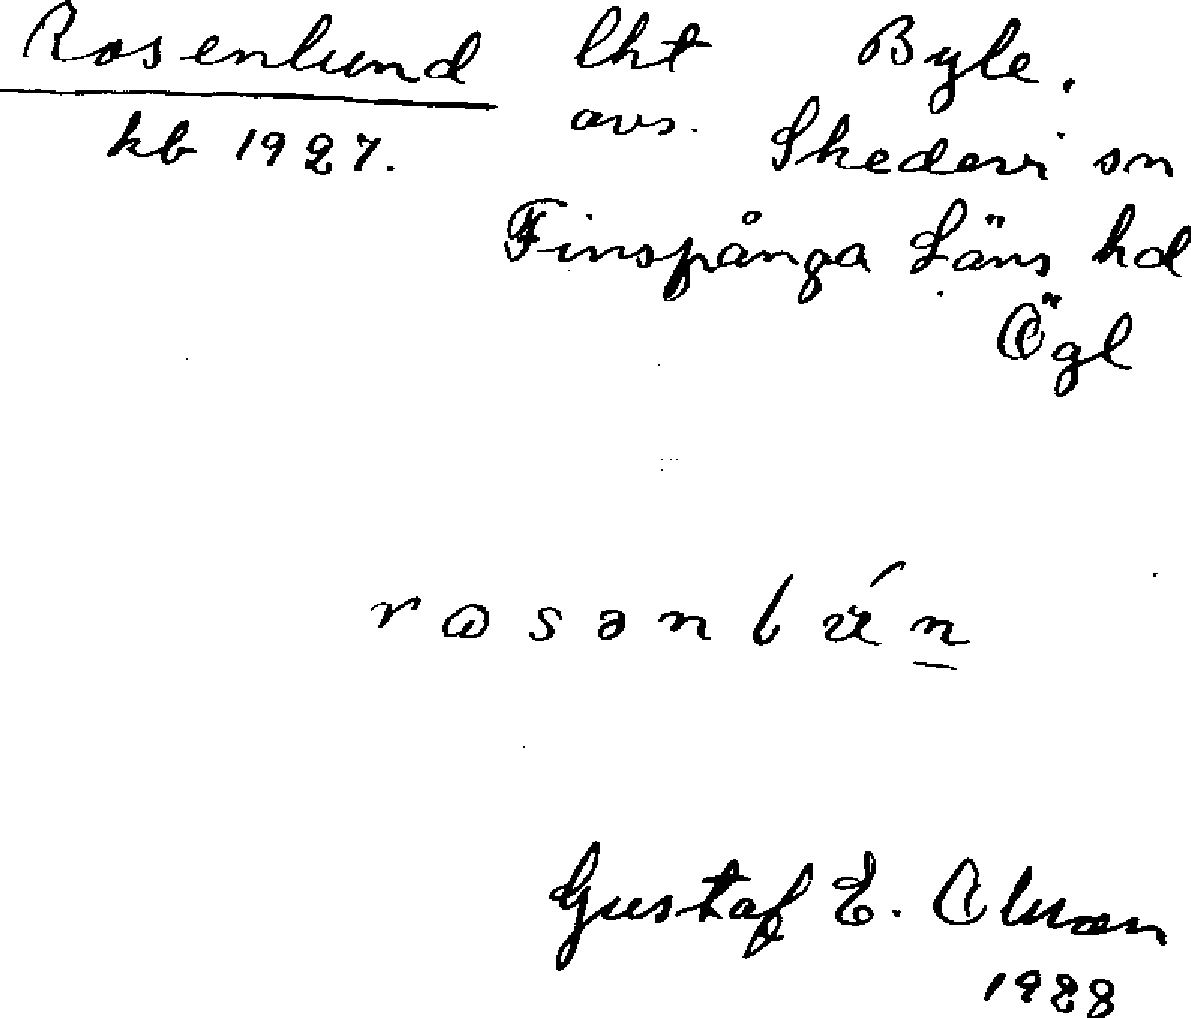 Rosenlund lht Byle.
kb 1927. avs. Skedevi sn
Finspånga Läns hd
Ögl
rosənlún
Gustaf E.
1928